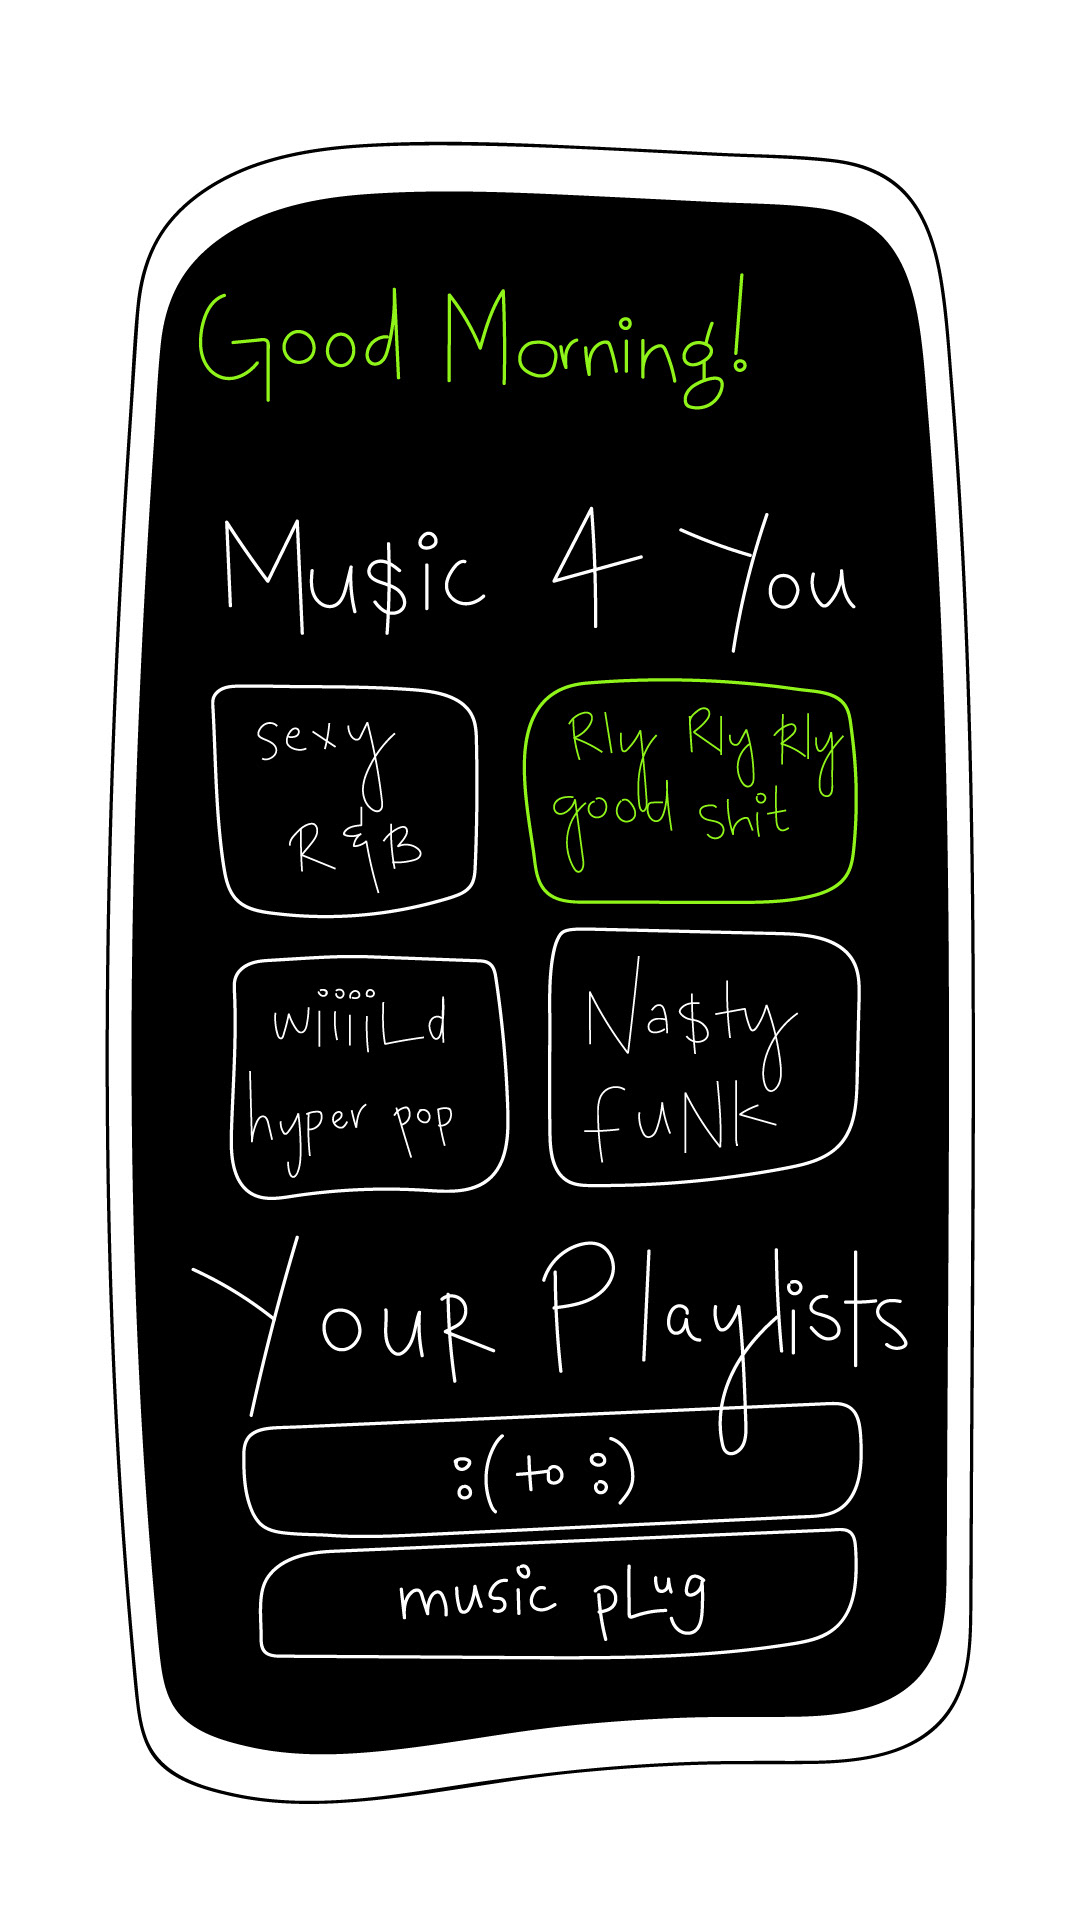 Good Morning!
Mu$ic 4 You
sexy
R&B
Rly Rly Rly
good shit
wiiiiLd
hyper pop
Na$ty
fuNk
YouR Playlists
:( to :)
music pLug